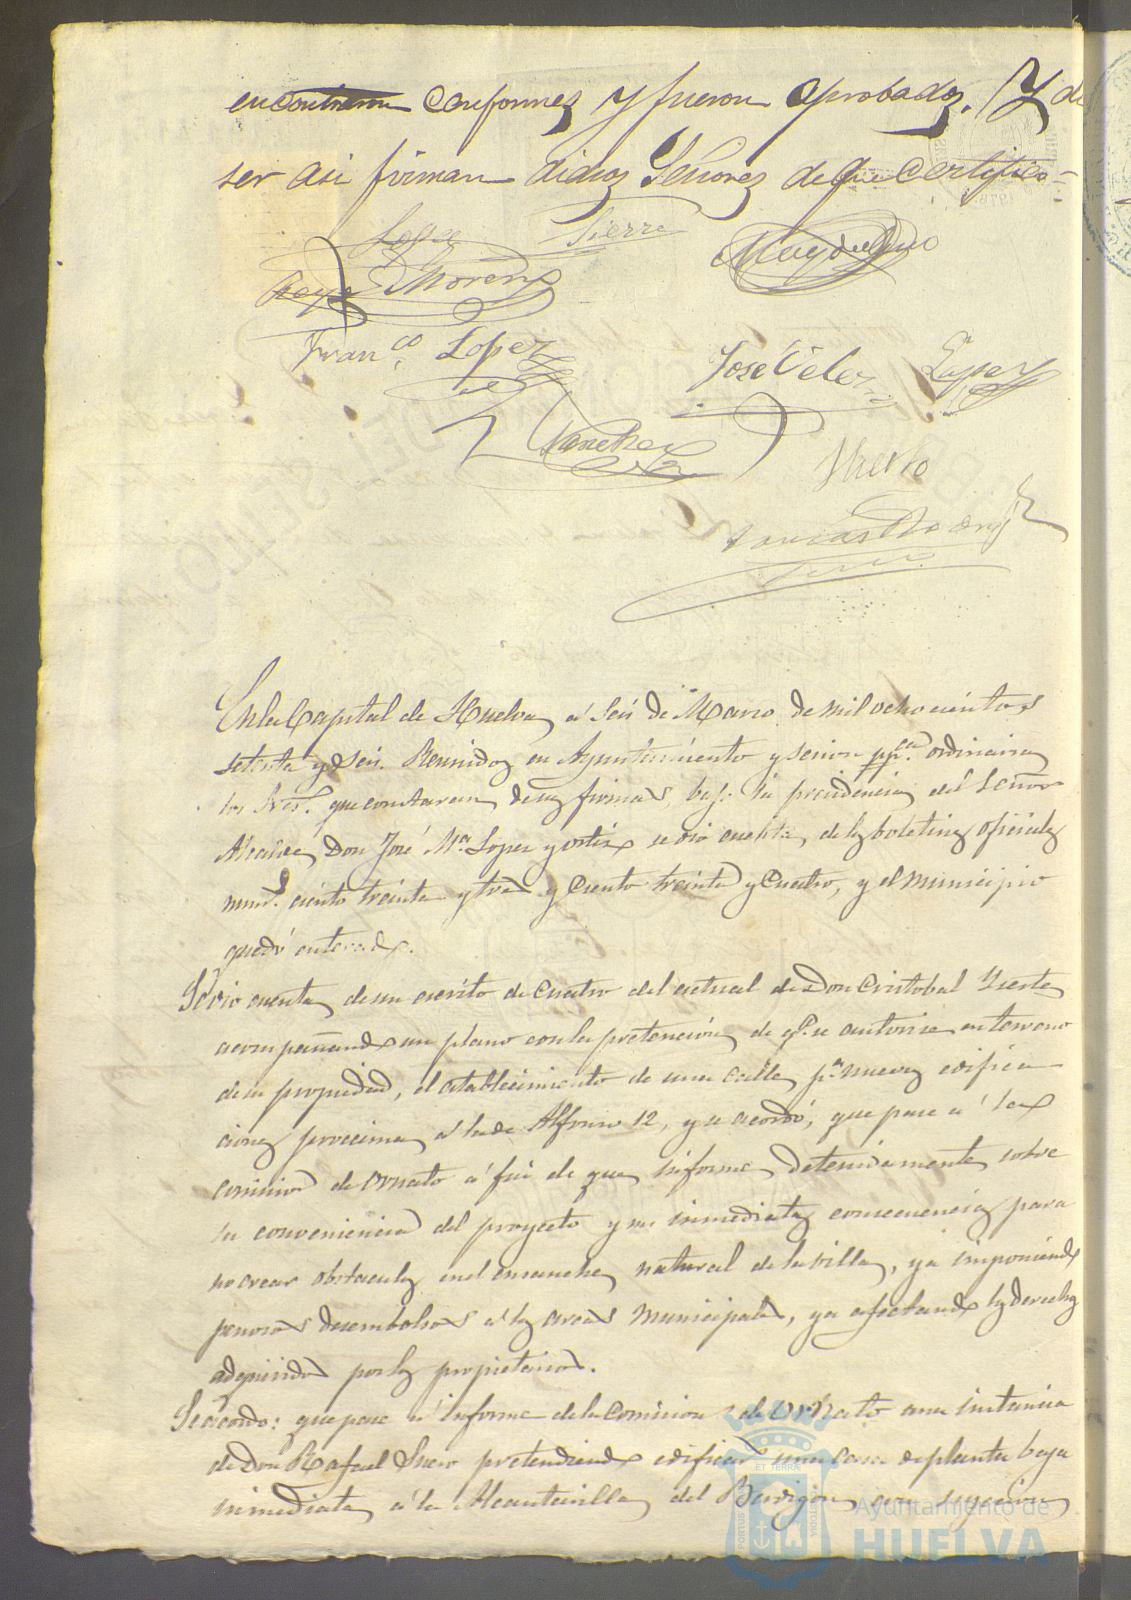 encontraron conformes y fueron aprobados. Y de
ser asi firman dichos Señores de que certifico=
Lopez Sierra Magdaleno
Reyes Moreno
Fran.co Lopez José Velez Lopez
Sanchez Huerto
Rodrig
En la Capital de Huelva á Seis de Marzo de mil ochocientos
setenta y seis. Reunidos en Ayuntamiento y sesion pp.ca ordinaria
los Sres. que constaran de sus firmas, bajo la presidencia del Señor
Alcalde Don José M.a Lopez y Ortiz se dió cuenta de los boletines oficiales
num.s ciento treinta y tres y Ciento treinta y Cuatro, y el Municipio
quedó enterado.
Se dió cuenta de un escrito de Cuatro del actual de Don Cristobal
acompañando un plano con la pretencion de q.e se autorice en terreno
de su propiedad, el establecimiento de una calle p.a nuevas edifica
ciones procsima á la de Alfonso 12, y se acordó, que pase á la
comision de ornato á fin de que informe detenidamente sobre
la conveniencia del proyecto y sus inmediatas consecuencias para
no crear obstaculos en el ensanche natural de la villa, ya imponiendo
penosos desembolsos á las arcas Municipales, ya afectando los derechos
adquiridos por los propietarios.
Se acordó: que pase á informe de la Comision de Ornato una instancia
de Don Rafael Suero pretendiendo edificar una casa de planta baja
inmediata á la Alcantarilla del Berdigon con sugecion
Ayuntamiento de
HUELVA